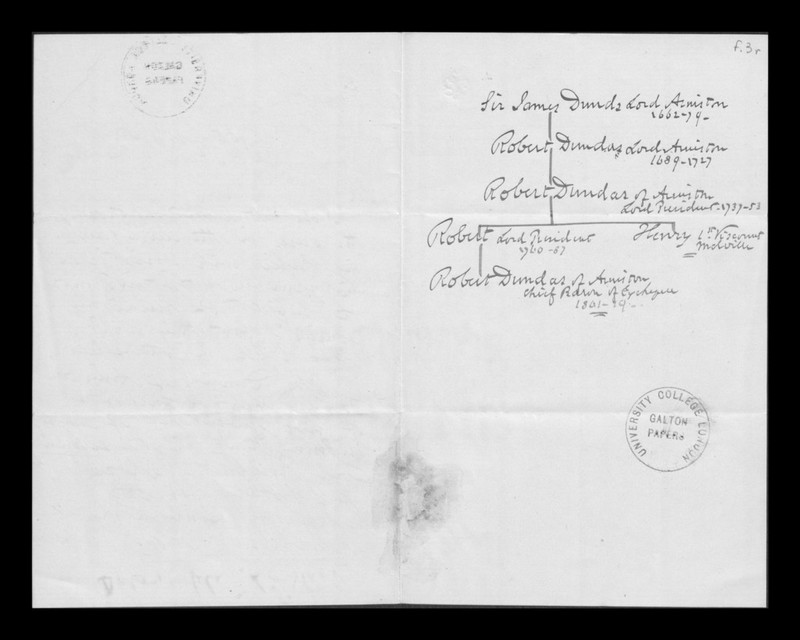 f.3r
Sir James Dunds Lord Arniston
1662-79-
Robert Dundas Lord Arniston
1689-1727
Robert Dundas of Arniston
Lord President. 1737-53
Robert Lord President
1760-87
Henry 1st Viscount
Melville
Robert Dundas of Arniston
Chief Baron of Exchequer
1801-19-
UNIVERSITY COLLEGE LONDON
GALTON
PAPERS